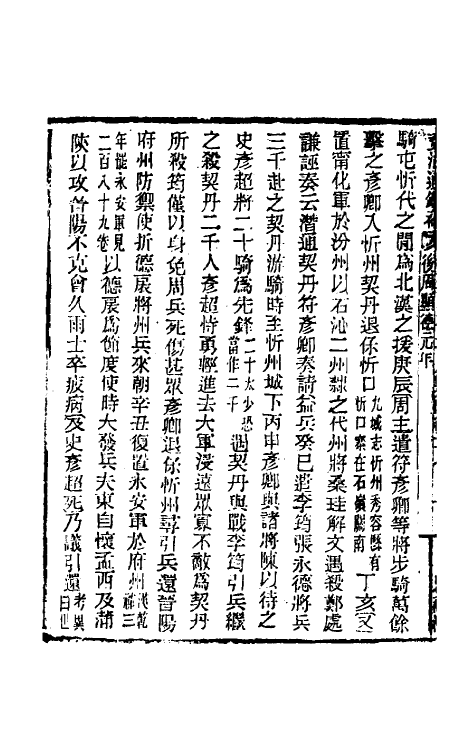 騎屯忻代之閒爲北漢之援庚辰周主遣符彥卿等將步騎萬餘
擊之彥卿入忻州契丹退保忻口九域志忻州秀容縣有忻口寨在石嶺關南丁亥又
置甯化軍於汾州以石沁二州隸之代州將桑珪解文遇殺鄭處
謙誣奏云潛通契丹符彥卿奏請益兵癸巳遣李筠張永德將兵
三千赴之契丹游騎時至忻州城下丙申彥卿與諸將陳以待之
史彥超將二十騎爲先鋒二十太少恐當作二千遇契丹與戰李筠引兵繼
之殺契丹二千人彥超恃勇輕進去大軍浸遠眾寡不敵爲契丹
所殺筠僅以身免周兵死傷甚眾彥卿退保忻州尋引兵還晉陽
府州防禦使折德扆將州兵來朝辛丑復置永安軍於府州漢乾祐三年罷永安軍見二百八十九卷以德扆爲節度使時大發兵夫東自懷孟西及蒲
陝以攻晉陽不克會久雨士卒疲病及史彥超死乃議引還考異曰世